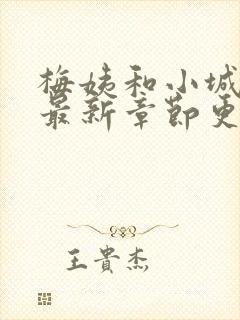 梅姨和小城
最新章节更
王贵杰